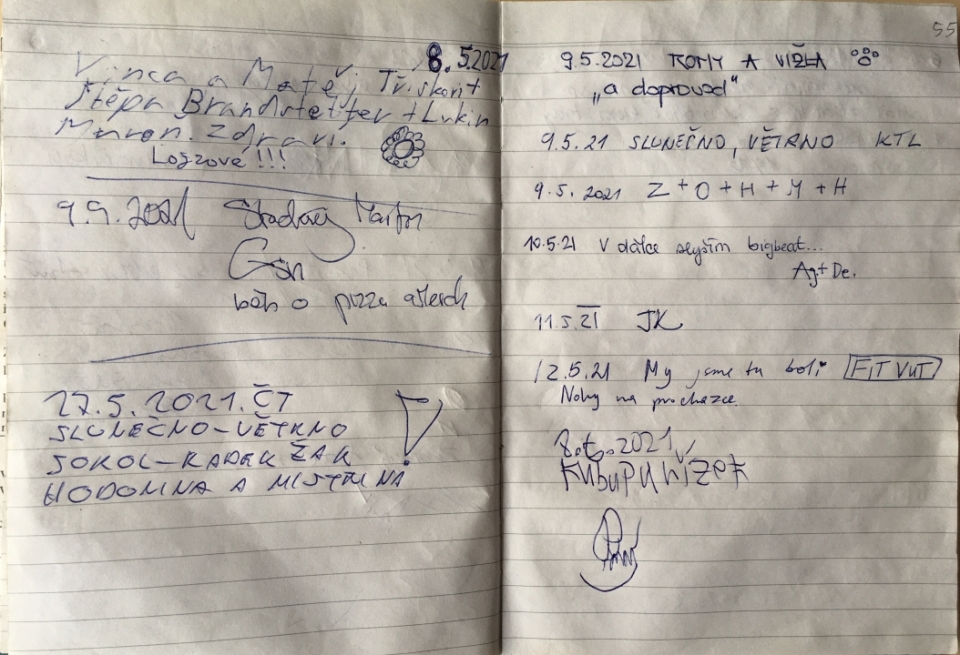 8.5.2021
Vinca a Matěj
Štěpa Brandstetter + Lukin
Zdraví.
!!!
9.9.2021 Martin
běh o pizza
27.5.2021. ČT
SLUNEČNO-VĚTRNO
SOKOL-RADEK ŽÁK
HODONÍNA A MISTŘÍNA
55
9.5.2021 TOMY A VIŽLA
„a doprovod"
9.5.21 SLUNEČNO, VĚTRNO KTL
9.5.2021 Z+O+H+M+H
10.5.21 V dálce slyším bigbeat...
Ag+De.
11.5.21 JK
12.5.21 My jsme tu boli FIT VUT
Nohy na procházce.
8.6.2021